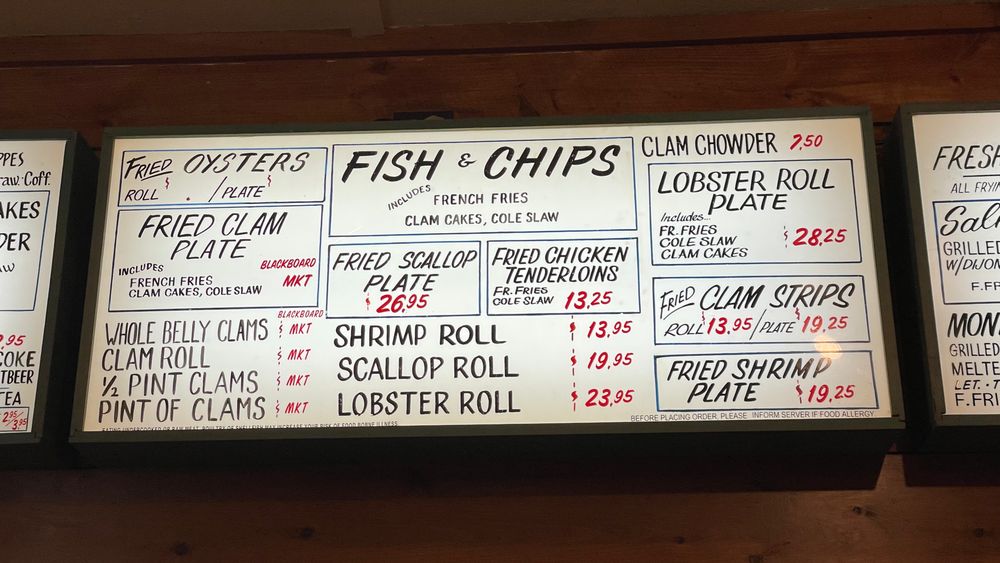 PPES
raw·Coff.
AKES
DER
AW
2.95
COKE
TBEER
TEA
2.95/
3.95
FRIED OYSTERS
ROLL $ . /PLATE $
FRIED CLAM
PLATE
INCLUDES
FRENCH FRIES
CLAM CAKES, COLE SLAW
BLACKBOARD
MKT
BLACKBOARD
WHOLE BELLY CLAMS $ MKT
CLAM ROLL $ MKT
½ PINT CLAMS $ MKT
PINT OF CLAMS $ MKT
EATING UNDERCOOKED OR RAW MEAT, POULTRY OR SHELLFISH MAY INCREASE YOUR RISK OF FOOD BORNE ILLNESS
FISH & CHIPS
INCLUDES
FRENCH FRIES
CLAM CAKES, COLE SLAW
FRIED SCALLOP
PLATE
$ 26.95
FRIED CHICKEN
TENDERLOINS
FR. FRIES
COLE SLAW 13.25
SHRIMP ROLL $ 13.95
SCALLOP ROLL $ 19.95
LOBSTER ROLL $ 23.95
CLAM CHOWDER 7.50
LOBSTER ROLL
PLATE
Includes...
FR. FRIES
COLE SLAW
CLAM CAKES
$ 28.25
FRIED CLAM STRIPS
ROLL $ 13.95 / PLATE 19.25
FRIED SHRIMP
PLATE $ 19.25
BEFORE PLACING ORDER, PLEASE INFORM SERVER IF FOOD ALLERGY.
FRESH
ALL FRYIN
Sal
GRILLED
W/DIJON
F.FR
MON
GRILLED
MELTE
LET. · T
F. FRI